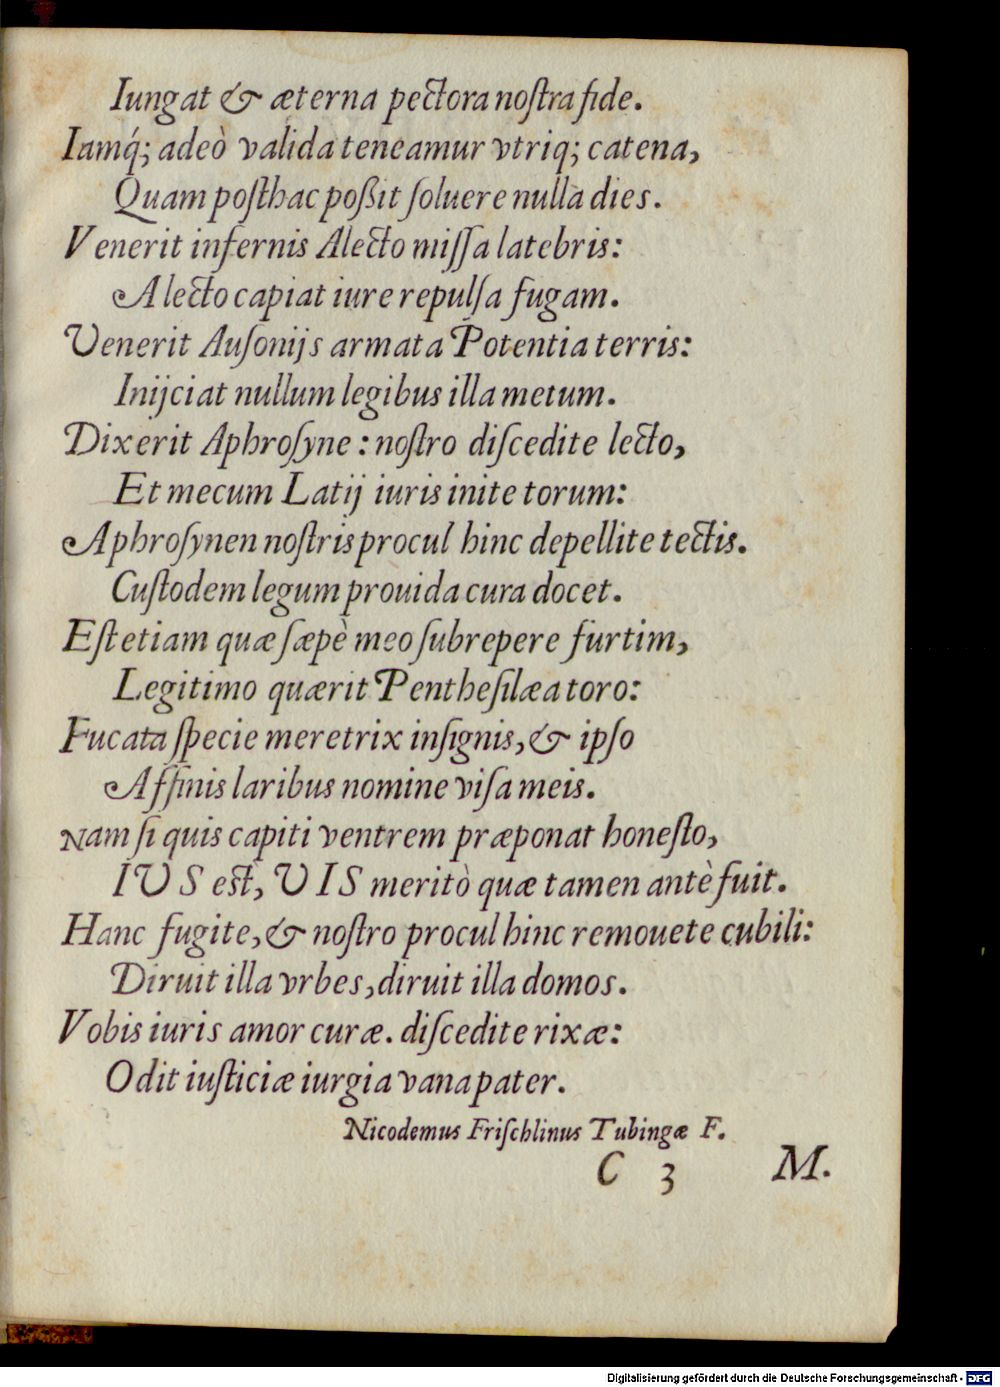 Iungat & æterna pectora noſtra fide.
Iamq́; adeò valida teneamur vtriq; catena,
Quam poſthac poßit ſoluere nulla dies.
Venerit infernis Alecto miſſa latebris:
Alecto capiat iure repulſa fugam.
Venerit Auſonijs armata Potentia terris:
Inijciat nullum legibus illa metum.
Dixerit Aphroſyne : noſtro diſcedite lecto,
Et mecum Latij iuris inite torum:
Aphroſynen noſtris procul hinc depellite tectis.
Cuſtodem legum prouida cura docet.
Eſt etiam quæ ſæpè meo ſubrepere furtim,
Legitimo quærit Pentheſilæa toro:
Fucata ſpecie meretrix inſignis, & ipſo
Affinis laribus nomine viſa meis.
Nam ſi quis capiti ventrem præponat honeſto,
IVS eſt, VIS meritò quæ tamen antè fuit.
Hanc fugite, & noſtro procul hinc remouete cubili:
Diruit illa vrbes, diruit illa domos.
Vobis iuris amor curæ. diſcedite rixæ:
Odit iuſticiæ iurgia vana pater.
Nicodemus Friſchlinus Tubingæ F.
C 3 M.
Digitalisierung gefördert durch die Deutsche Forschungsgemeinschaft - DFG